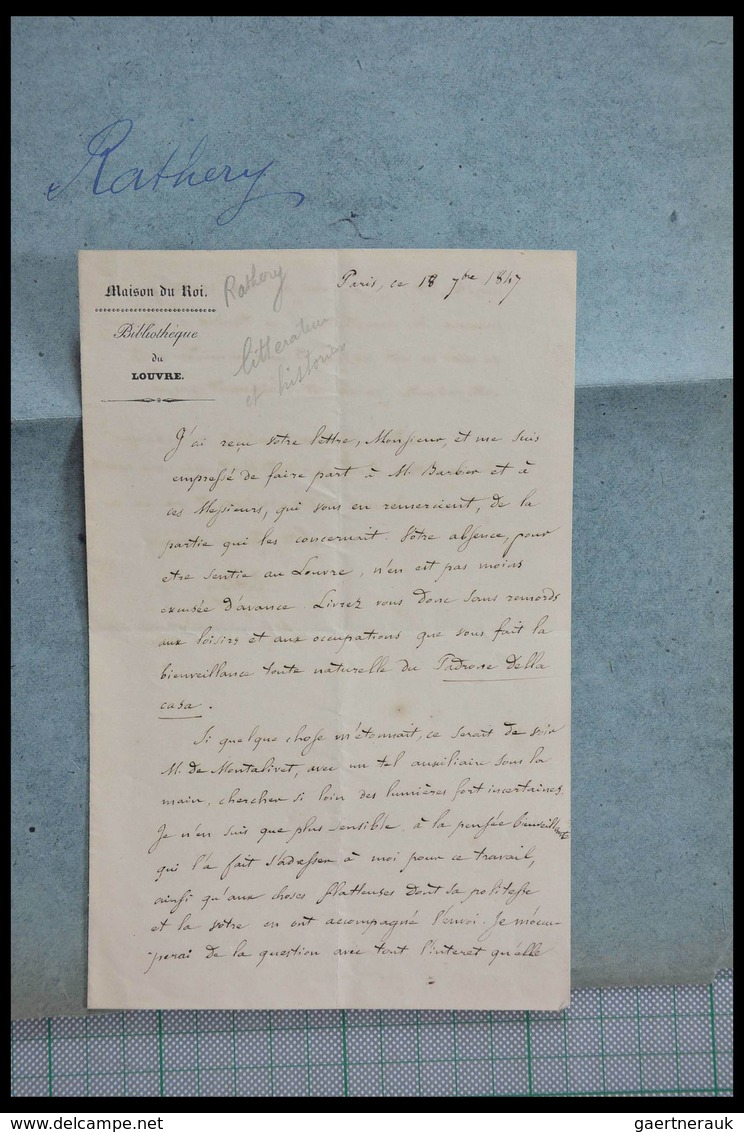 Rathery
Maison du Roi.
Bibliothèque
du
LOUVRE.
Rathery
litterateur
et historien
Paris, ce 18 7bre 1847
J'ai reçu votre lettre, Monsieur, et me suis
empressé de faire part à M. Barbier et à
ces Messieurs, qui vous en remercient, de la
partie qui les concernait. Votre absence, pour
etre sentie au Louvre, n'en est pas moins
excusée d'avance. Livrez vous donc sans remords
aux loisirs et aux occupations que vous fait la
bienveillance toute naturelle du Padrone della
casa.
Si quelque chose m'étonnait, ce serait de voir
M. de Montalivet, avec un tel auxiliaire sous la
main, chercher si loin des lumières fort incertaines.
Je n'en suis que plus sensible à la pensée bienveillante
qui l'a fait s'adresser à moi pour ce travail,
ainsi qu'aux choses flatteuses dont sa politesse
et la vôtre en ont accompagné l'envoi. Je m'occu-
perai de la question avec tout l'interet qu'elle
gaertnerauk